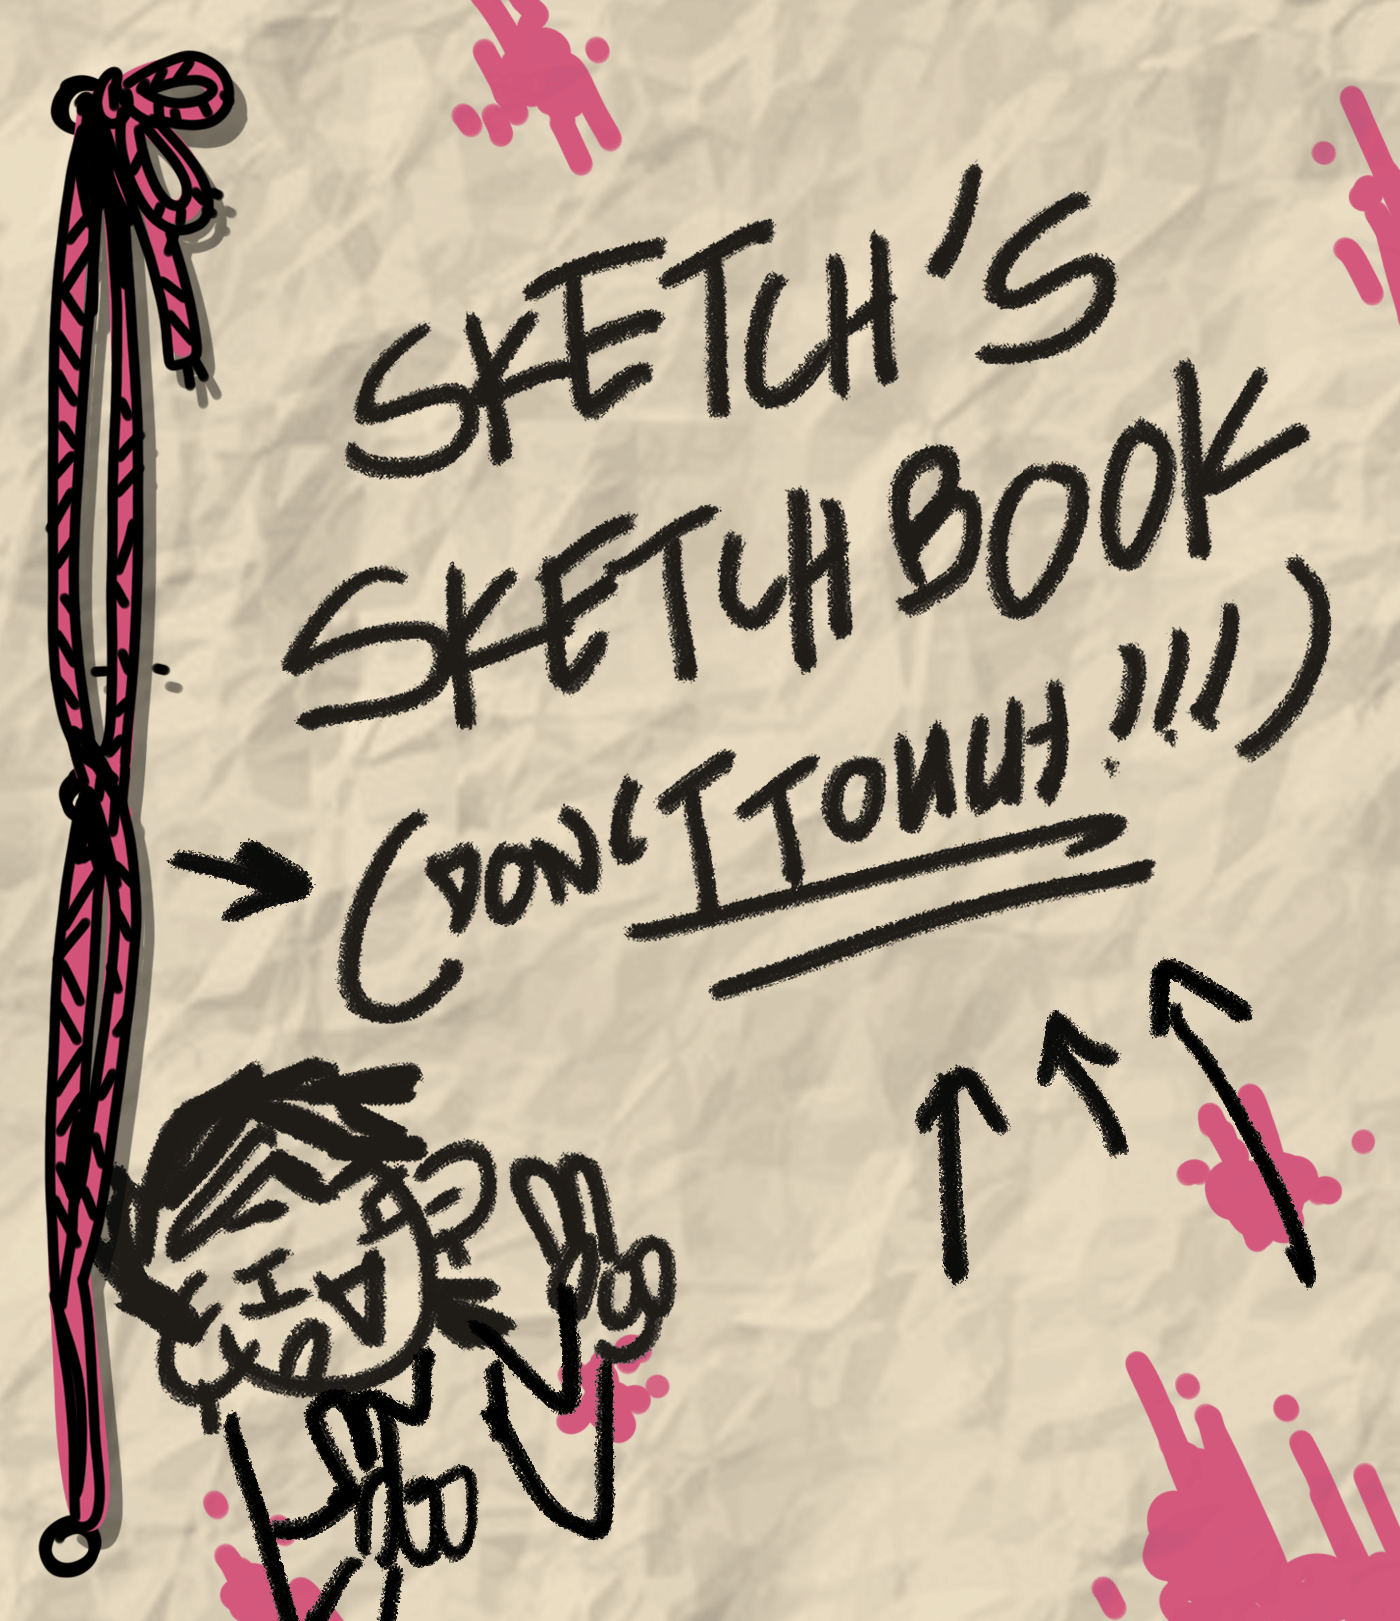 SKETCH'S
SKETCHBOOK
(DON'T TOUCH!!!)